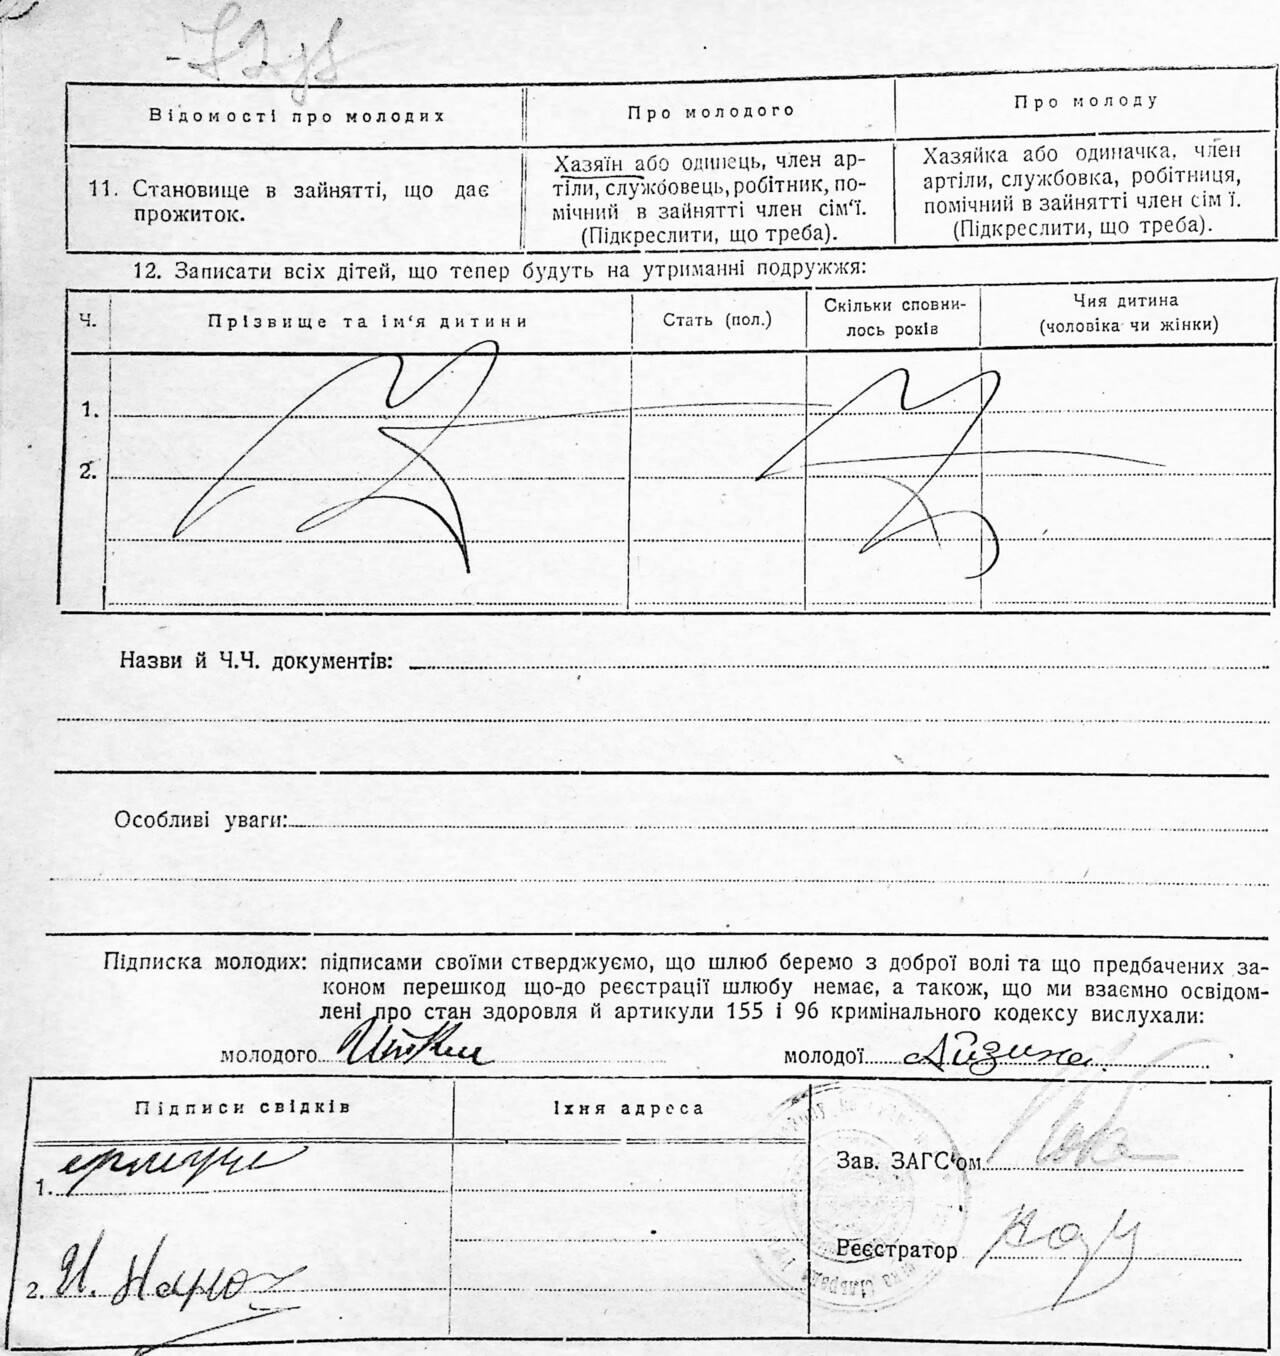 Відомості про молодих
Про молодого
Про молоду
11. Становище в зайнятті, що дає
прожиток.
Хазяїн або одинець, член ар-
тіли, службовець, робітник, по-
мічний в зайнятті член сім'ї.
(Підкреслити, що треба).
Хазяйка або одиначка, член
артіли, службовка, робітниця,
помічний в зайнятті член сім ї.
(Підкреслити, що треба).
12. Записати всіх дітей, що тепер будуть на утриманні подружжя:
Ч.
Прізвище та ім'я дитини
Стать (пол.)
Скільки сповни-
лось років
Чия дитина
(чоловіка чи жінки)
1.
2.
Назви й Ч.Ч. документів:
Особливі уваги:
Підписка молодих: підписами своїми стверджуємо, що шлюб беремо з доброї волі та що предбачених за-
коном перешкод що-до реєстрації шлюбу немає, а також, що ми взаємно освідом-
лені про стан здоровля й артикули 155 і 96 кримінального кодексу вислухали:
молодого
молодої
Підписи свідків
Їхня адреса
1.
Зав. ЗАГС'ом
Реєстратор
2.